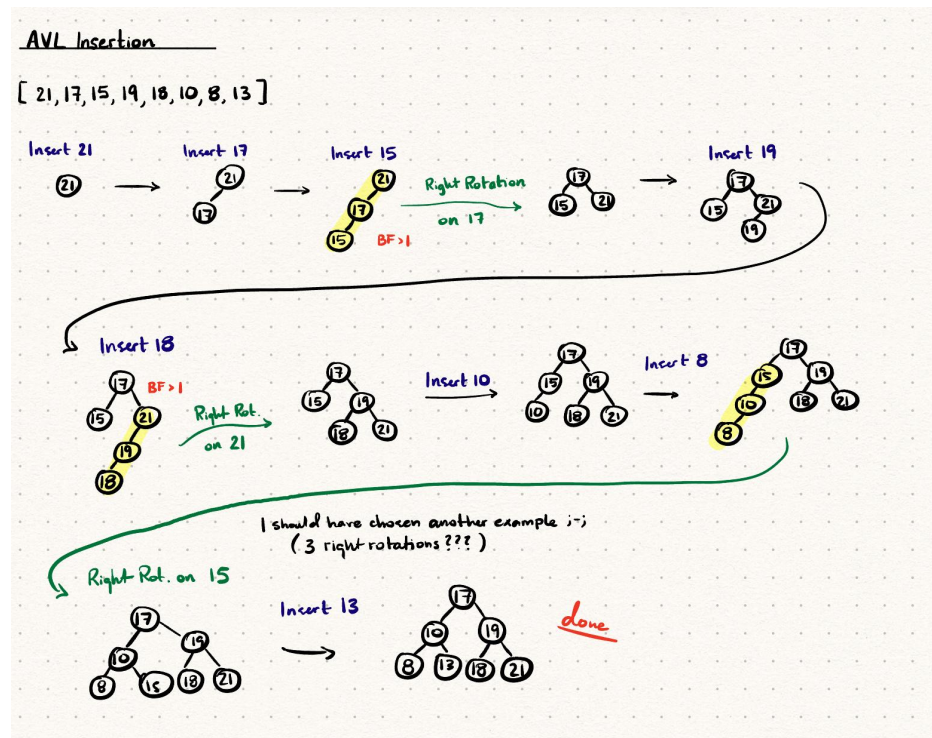 AVL Insertion
[ 21, 17, 15, 19, 18, 10, 8, 13 ]
Insert 21
21
Insert 17
21
17
Insert 15
21
17
15
BF>1
Right Rotation
on 17
17
15 21
Insert 19
17
15 21
19
Insert 18
17
BF>1
15 21
19
18
Right Rot.
on 21
17
15 19
18 21
Insert 10
17
15 19
10 18 21
Insert 8
17
15 19
10 18 21
8
I should have chosen another example ;-;
( 3 right rotations ??? )
Right Rot. on 15
17
10 19
8 15 18 21
Insert 13
17
10 19
8 13 18 21
done